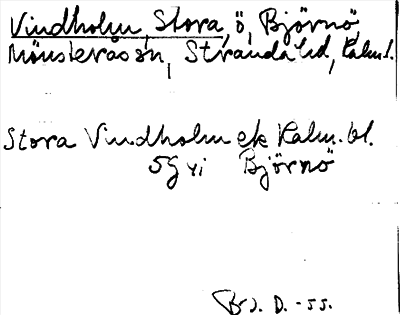 Vindholm, Stora, ö, Björnö,
Mönsterås sn, Stranda hd, Kalm.l.
Stora Vindholm ek Kalm. bl.
5G vi Björnö
D. -55.